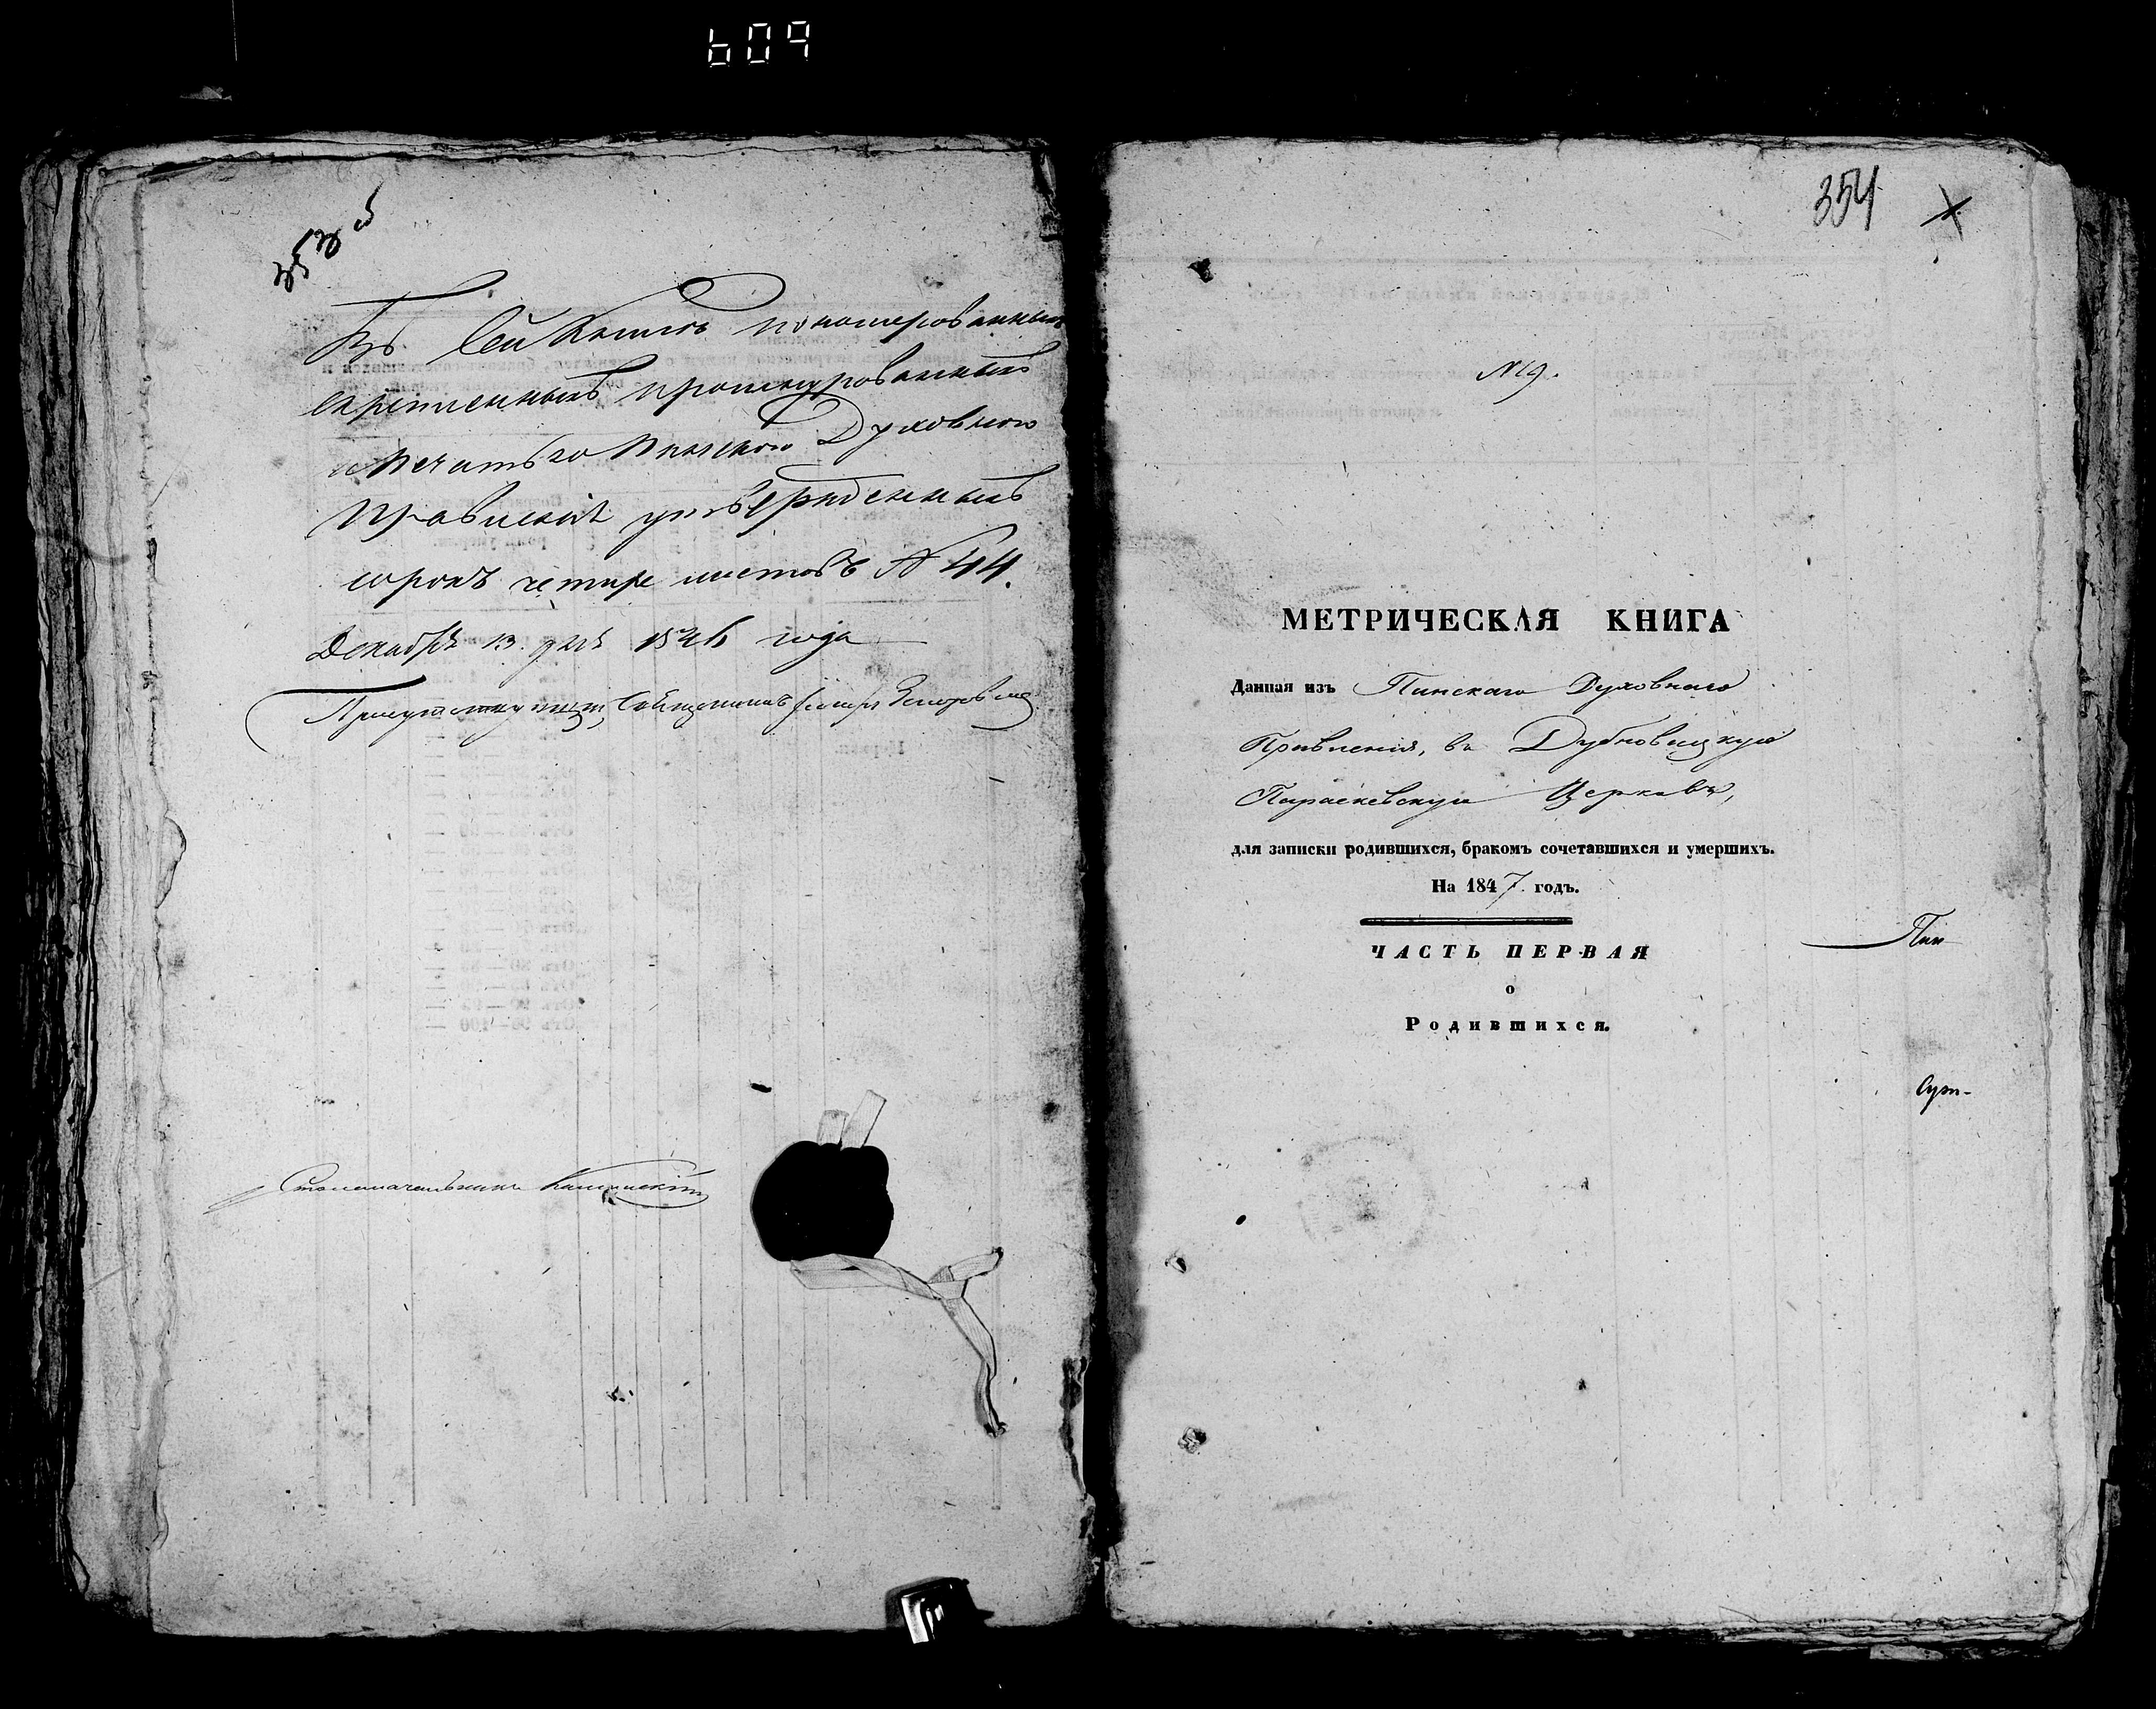 609
353 об
Въ сей Книгѣ пономерованныхъ
скрепленныхъ прошнурованныхъ
и печатью Пинскаго Духовнаго
Правленія утвержденныхъ
сорокъ четире листовъ № 44.
Декабря 13 дня 1846 года
Присутствующій, Священникъ
Столоначальникъ
354
№ 9.
МЕТРИЧЕСКАЯ КНИГА
Данная изъ Пинскаго Духовнаго
Правленія, въ Дубновицкую
Параскевскую Церковь,
для записки родившихся, бракомъ сочетавшихся и умершихъ.
На 1847 годъ.
ЧАСТЬ ПЕРВАЯ
о
Родившихся.
Пин-